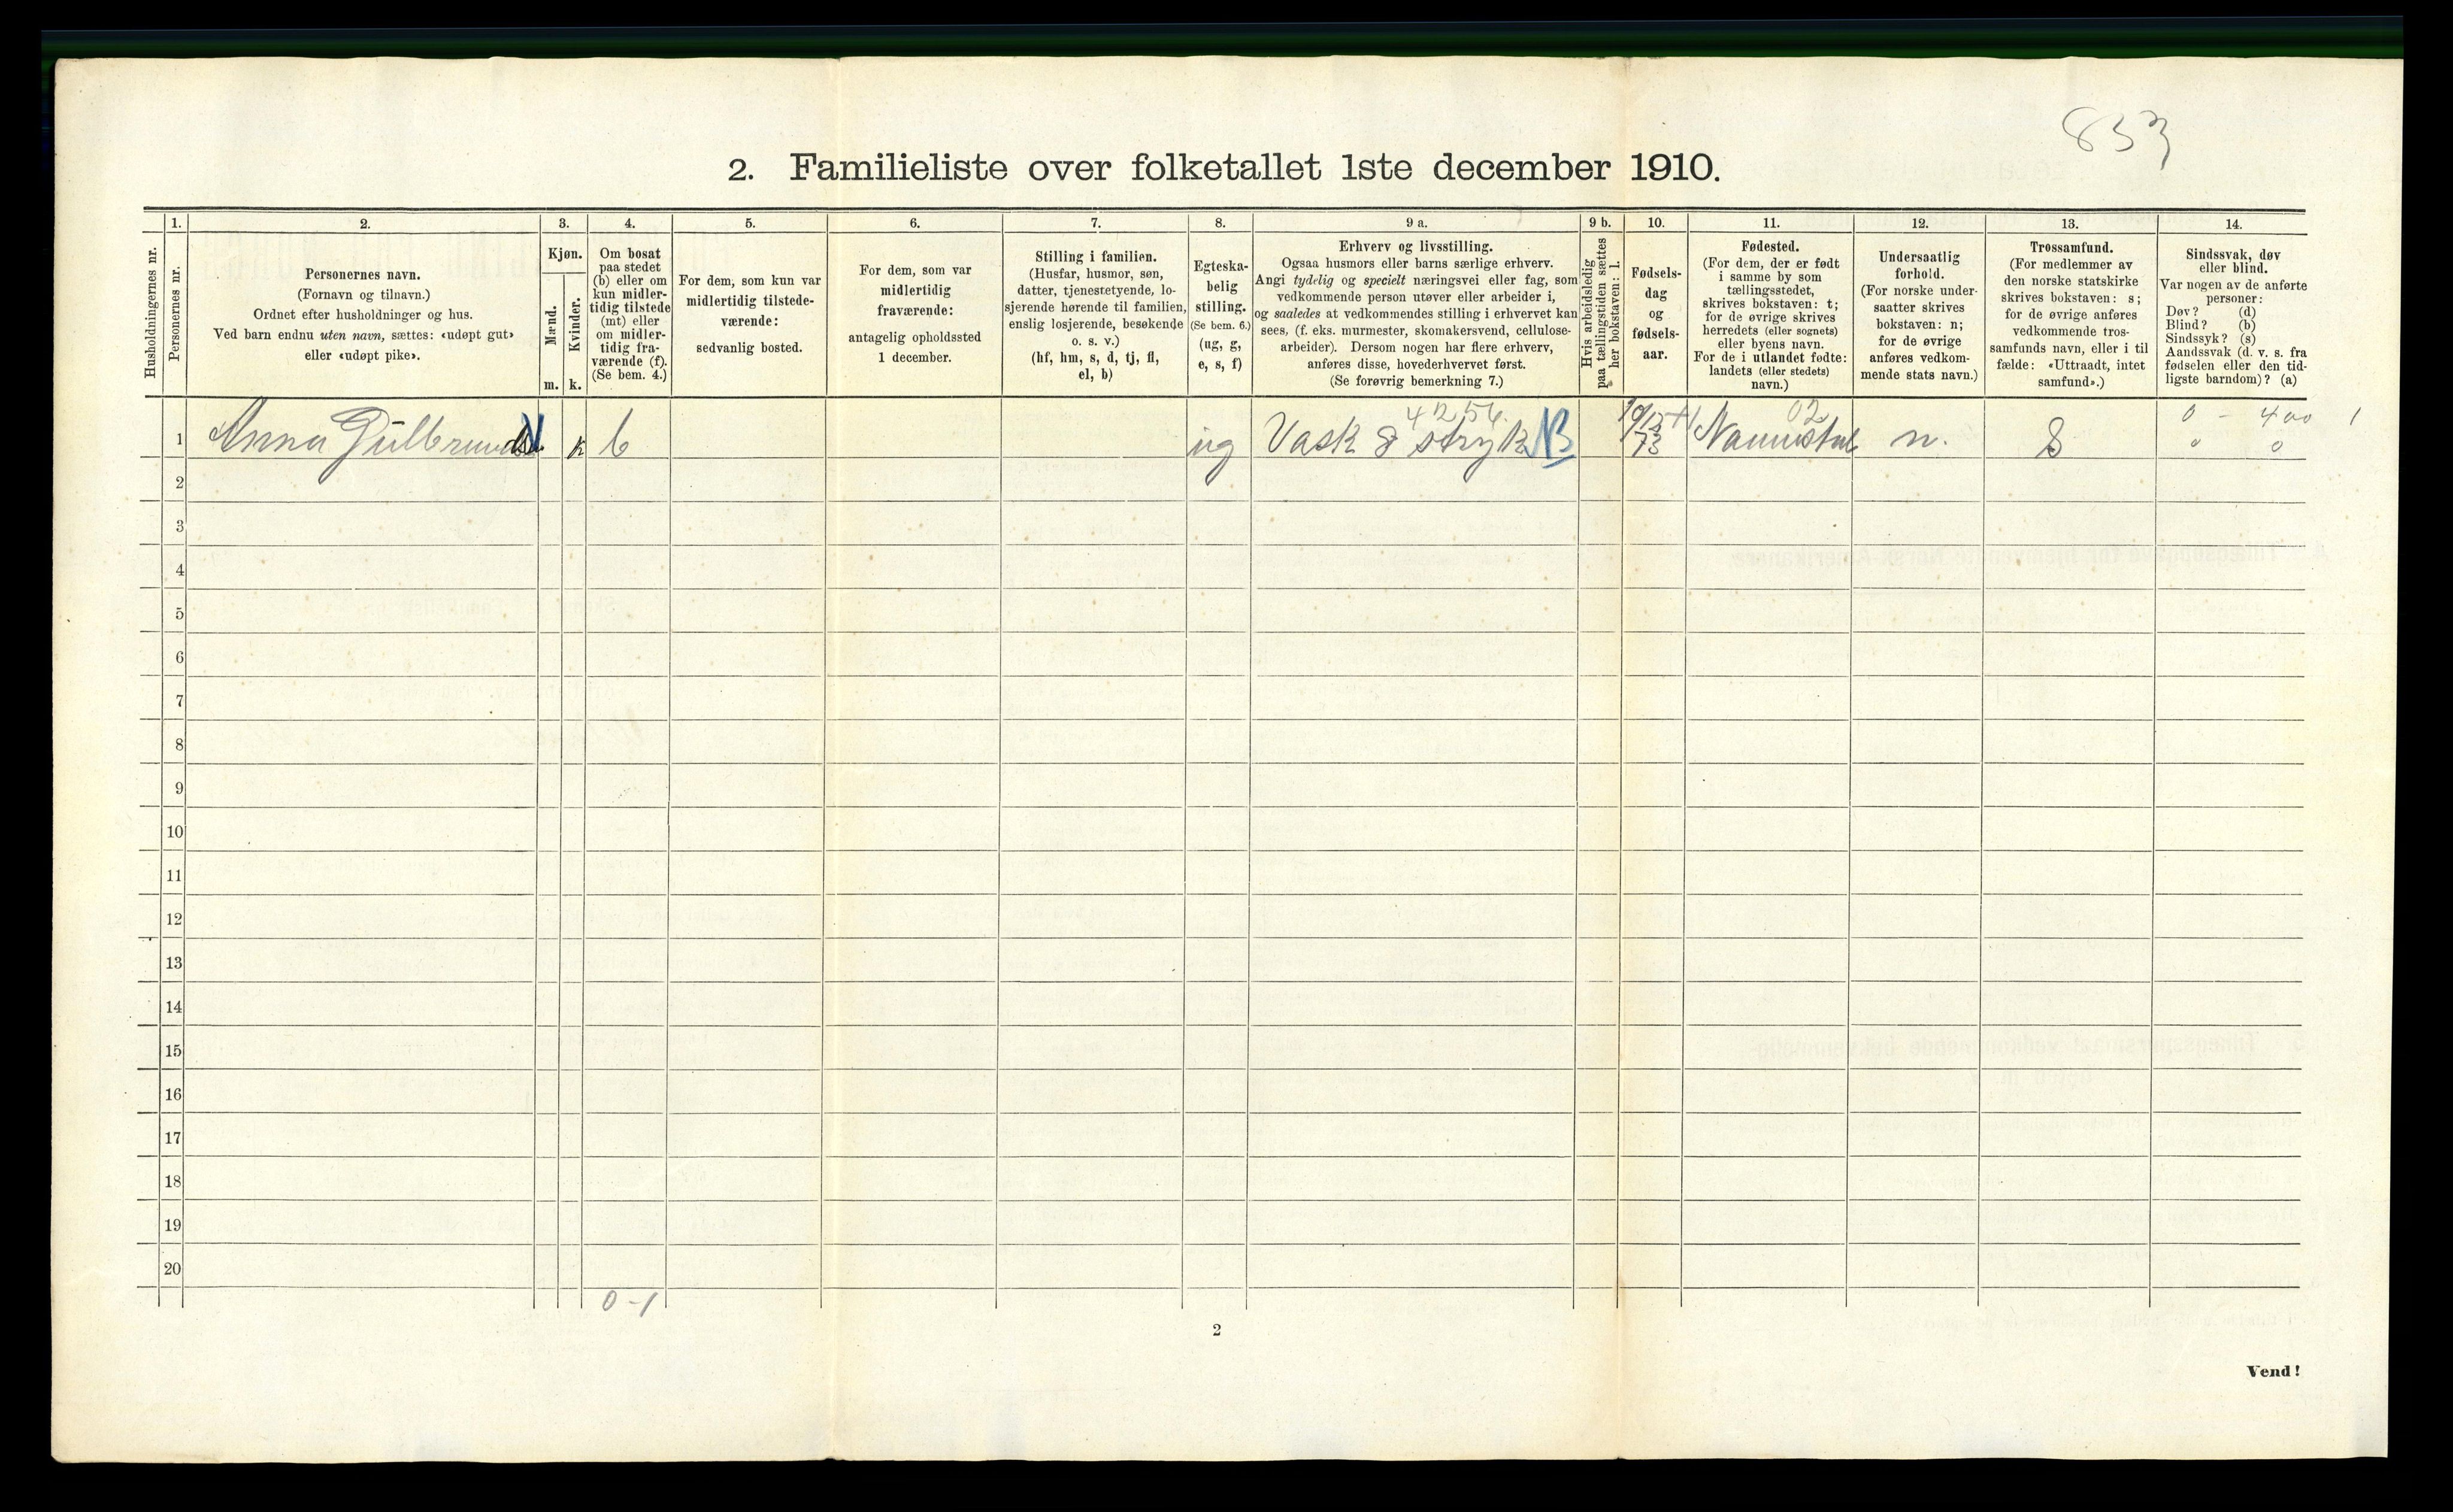 833
2. Familieliste over folketallet 1ste december 1910.
Husholdningernes nr.
1.
Personernes nr.
2.
Personernes navn.
(Fornavn og tilnavn.)
Ordnet efter husholdninger og hus.
Ved barn endnu uten navn, sættes: «udøpt gut»
eller «udøpt pike».
3.
Kjøn.
Mænd.
m.
Kvinder.
k.
4.
Om bosat
paa stedet
(b) eller om
kun midler-
tidig tilstede
(mt) eller
om midler-
tidig fra-
værende (f).
(Se bem. 4.)
5.
For dem, som kun var
midlertidig tilstede-
værende:
sedvanlig bosted.
6.
For dem, som var
midlertidig
fraværende:
antagelig opholdssted
1 december.
7.
Stilling i familien.
(Husfar, husmor, søn,
datter, tjenestetyende, lo-
sjerende hørende til familien,
enslig losjerende, besøkende
o. s. v.)
(hf, hm, s, d, tj, fl,
el, b)
8.
Egteska-
belig
stilling.
(Se bem. 6.)
(ug, g,
e, s, f)
9 a.
Erhverv og livsstilling.
Ogsaa husmors eller barns særlige erhverv.
Angi tydelig og specielt næringsvei eller fag, som
vedkommende person utøver eller arbeider i,
og saaledes at vedkommendes stilling i erhvervet kan
sees, (f. eks. murmester, skomakersvend, cellulose-
arbeider). Dersom nogen har flere erhverv,
anføres disse, hovederhvervet først.
(Se forøvrig bemerkning 7.)
9 b.
Hvis arbeidsledig
paa tællingstiden sættes
her bokstaven: l.
10.
Fødsels-
dag
og
fødsels-
aar.
11.
Fødested.
(For dem, der er født
i samme by som
tællingsstedet,
skrives bokstaven: t;
for de øvrige skrives
herredets (eller sognets)
eller byens navn.
For de i utlandet fødte:
landets (eller stedets)
navn.)
12.
Undersaatlig
forhold.
(For norske under-
saatter skrives
bokstaven: n;
for de øvrige
anføres vedkom-
mende stats navn.)
13.
Trossamfund.
(For medlemmer av
den norske statskirke
skrives bokstaven: s;
for de øvrige anføres
vedkommende tros-
samfunds navn, eller i til
fælde: «Uttraadt, intet
samfund».)
14.
Sindssvak, døv
eller blind.
Var nogen av de anførte
personer:
Døv? (d)
Blind? (b)
Sindssyk? (s)
Aandssvak (d. v. s. fra
fødselen eller den tid-
ligste barndom)? (a)
4256. 02 0 - 400 1
1 Anna k b ug Vask & stryk NB 73 n. S " 0
2
3
4
5
6
7
8
9
10
11
12
13
14
15
16
17
18
19
20
0-1
2
Vend!